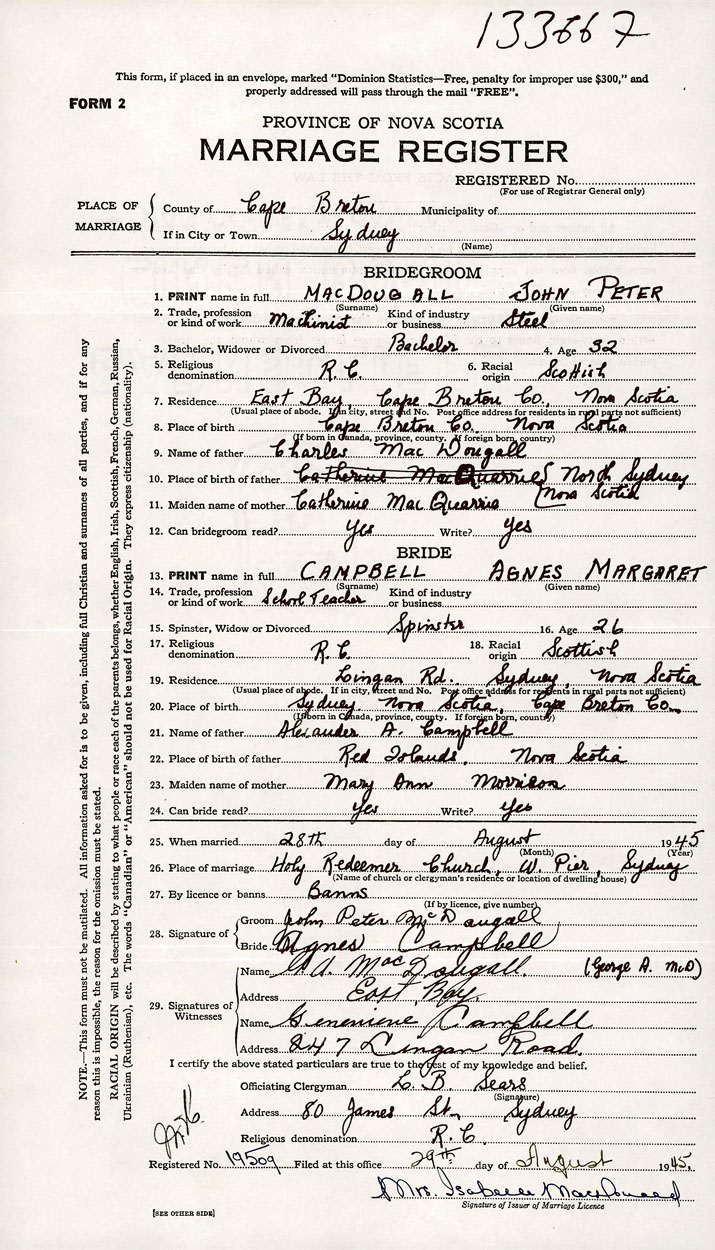 133667
This form, if placed in an envelope, marked "Dominion Statistics—Free, penalty for improper use $300," and
properly addressed will pass through the mail "FREE".
FORM 2
PROVINCE OF NOVA SCOTIA
MARRIAGE REGISTER
REGISTERED No.
(For use of Registrar General only)
PLACE OF MARRIAGE
County of Cape Breton Municipality of
If in City or Town Sydney
(Name)
BRIDEGROOM
1. PRINT name in full MACDOUGALL JOHN PETER
(Surname) (Given name)
2. Trade, profession or kind of work Machinist Kind of industry or business Steel
3. Bachelor, Widower or Divorced Bachelor 4. Age 32
5. Religious denomination R.C. 6. Racial origin Scottish
7. Residence East Bay, Cape Breton Co., Nova Scotia
(Usual place of abode. If in city, street and No. Post office address for residents in rural parts not sufficient)
8. Place of birth Cape Breton Co. Nova Scotia
(If born in Canada, province, county. If foreign born, country)
9. Name of father Charles MacDougall
10. Place of birth of father Catherine MacQuarrie North Sydney
Nova Scotia
11. Maiden name of mother Catherine MacQuarrie
12. Can bridegroom read? Yes Write? Yes
BRIDE
13. PRINT name in full CAMPBELL AGNES MARGARET
(Surname) (Given name)
14. Trade, profession or kind of work School Teacher Kind of industry or business
15. Spinster, Widow or Divorced Spinster 16. Age 26
17. Religious denomination R.C. 18. Racial origin Scottish
19. Residence Lingan Rd. Sydney, Nova Scotia
(Usual place of abode. If in city, street and No. Post office address for residents in rural parts not sufficient)
20. Place of birth Sydney Nova Scotia, Cape Breton Co.
(If born in Canada, province, county. If foreign born, country)
21. Name of father Alexander A. Campbell
22. Place of birth of father Red Islands, Nova Scotia
23. Maiden name of mother Mary Ann Morrison
24. Can bride read? Yes Write? Yes
25. When married 28th day of August 1945
(Month) (Year)
26. Place of marriage Holy Redeemer Church, W. Pier, Sydney
(Name of church or clergyman's residence or location of dwelling house)
27. By licence or banns Banns
(If by licence, give number)
28. Signature of
Groom John Peter McDougall
Bride Agnes Campbell
29. Signatures of Witnesses
Name G.A. MacDougall. (George A. McD)
Address East Bay.
Name Genevieve Campbell
Address 247 Lingan Road.
I certify the above stated particulars are true to the best of my knowledge and belief.
Officiating Clergyman L. B. Sears
(Signature)
Address 80 James St., Sydney
Religious denomination R.C.
Registered No. 19509 Filed at this office 29th day of August 1945.
Mrs. Isabelle MacDonald
Signature of Issuer of Marriage Licence
[SEE OTHER SIDE]
NOTE.—This form must not be mutilated. All information asked for is to be given, including full Christian and surnames of all parties, and if for any
reason this is impossible, the reason for the omission must be stated.
RACIAL ORIGIN will be described by stating to what people or race each of the parents belongs, whether English, Irish, Scottish, French, German, Russian,
Ukrainian (Ruthenian), etc. The words "Canadian" or "American" should not be used for Racial Origin. They express citizenship (nationality).